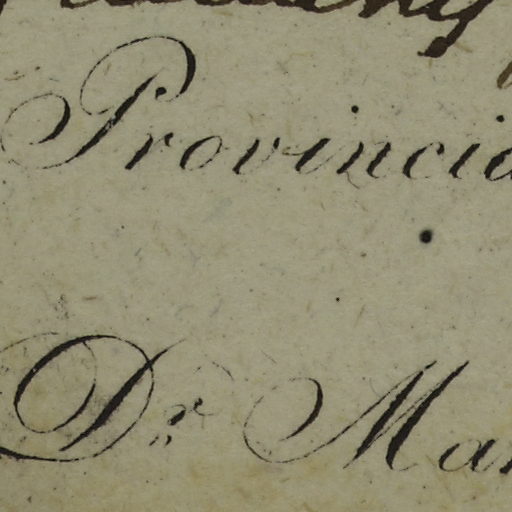 Provincia
D.r Mar